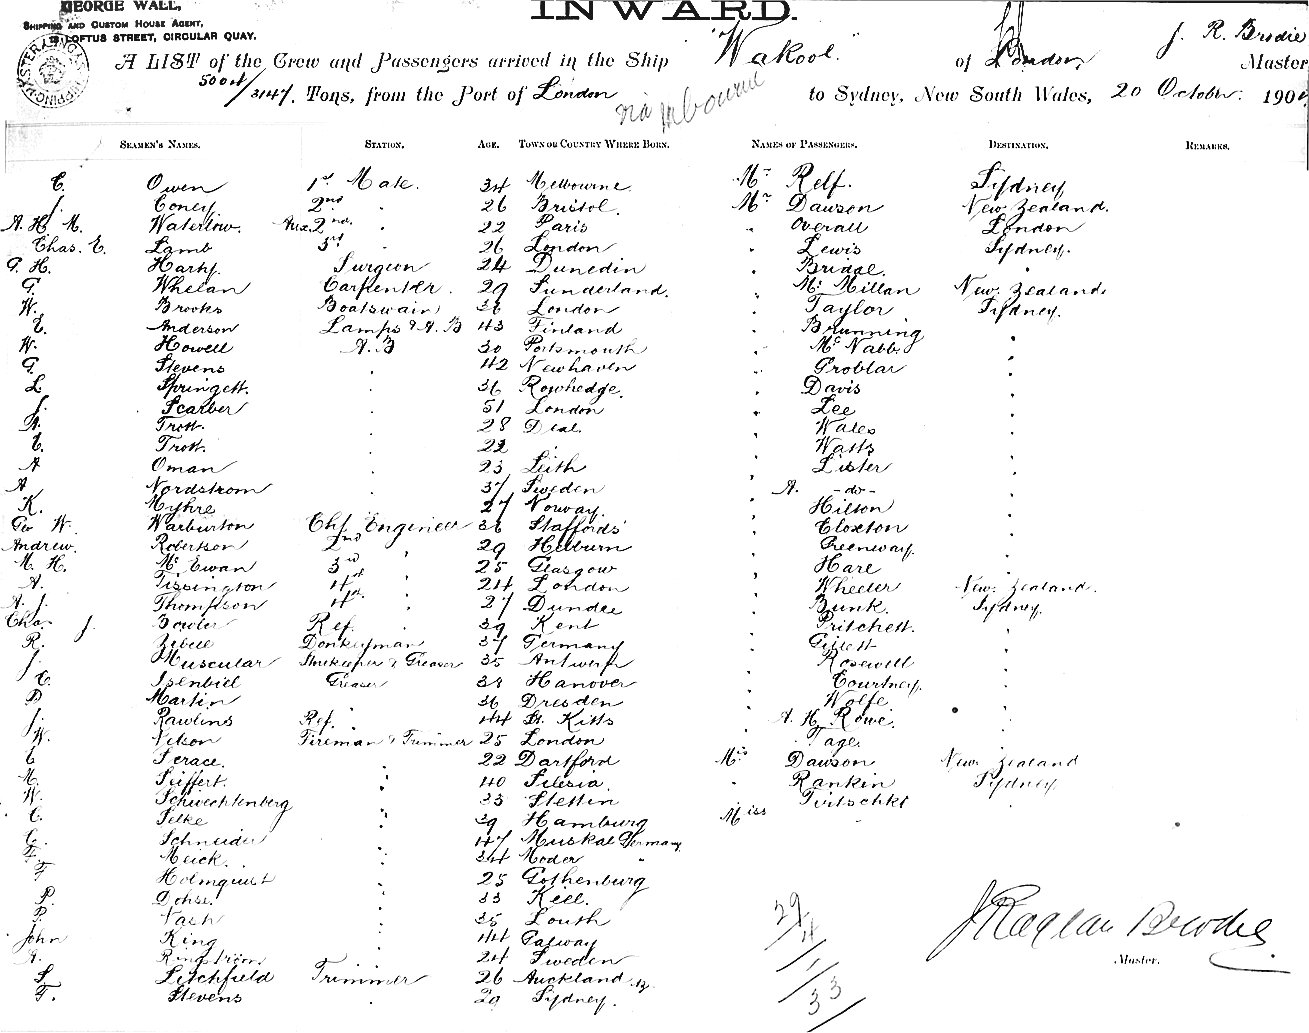 GEORGE WALL,
INWARD.
SHIPPING AND CUSTOM HOUSE AGENT,
LOFTUS STREET, CIRCULAR QUAY.
A LIST of the Crew and Passengers arrived in the Ship "Wakool" of London, J. R. Brodie Master
3147 Tons, from the Port of London to Sydney, New South Wales, 20 October 190
via
SEAMEN'S NAMES. STATION. AGE. TOWN OR COUNTRY WHERE BORN. NAMES OF PASSENGERS. DESTINATION. REMARKS.
E. Owen 1st Mate. 34 Melbourne. Mr Relf. Sydney
J. Coney 2nd " 26 Bristol. Mr Dawson New Zealand.
A. H. M. Waterlow. Aux. 2nd " 22 Paris " Overall London
Chas. E. Lamb 3rd 26 London " Lewis Sydney.
G. H. Surgeon 24 Dunedin " Bridge.
G. Whelan Carpenter. 29 Sunderland. " McMillan New Zealand.
W. Brooks Boatswain 38 London " Taylor Sydney.
E. Anderson Lamps & A. B 43 Finland " Brunning "
W. Howell A. B 30 Portsmouth " McNabb "
G. Stevens " 42 Newhaven " Groblar "
L. Springett. " 36 Rowhedge. " Davis "
J. Scarber " 51 London " Lee "
A. Trott. " 28 Deal. " Wales "
E. Trott. " 22 " " Watts "
A Oman " 23 Leith " Lister "
A Nordstrom " 37 Sweden A. -do- "
K. Myhre " 27 Norway. " Hilton "
Geo W. Warburton Chf Engineer 38 Staffords' " Cloxton "
Andrew. Robertson 2nd " 29 Hebburn " Greenway. "
M. H. McEwan 3rd " 25 Glasgow " Hare "
A. Tissington 4th " 24 London " Wheeler New Zealand.
A. J. Thompson 4th " 27 Dundee " Bunk. Sydney.
Chas J. Bowler Ref. 39 Kent " Pritchett. "
R. Donkeyman 37 Germany " Gillett "
J. Muscular Storekeeper & Greaser 35 Antwerp " Rosewell "
C. Isenbiel Greaser 38 Hanover " Courtney. "
P Martin " 36 Dresden " Wolfe "
J. Rawlins Ref. 44 St. Kitts A. H. Rowe. "
W. Nelson Fireman & Trimmer 25 London " Page. "
C Serace. " 22 Dartford Mrs Dawson New Zealand
M. Seiffert. " 40 Silesia. " Rankin Sydney
W. Schwechtenberg " 33 Stettin Miss "
C. Silke " 39 Hamburg
C. Schneider " 47 Muskal Germany
F. Meick. " 34 Moder "
F Holmquist " 25 Gothenburg
P. Dohse. " 33 Kiel.
P. Nash " 35 Louth
John King " 44 Galway
A. Ringstrom " 24 Sweden
S. Litchfield Trimmer 26 Auckland
F. Stevens " 20 Sydney.
J Raglan Brodie
Master.